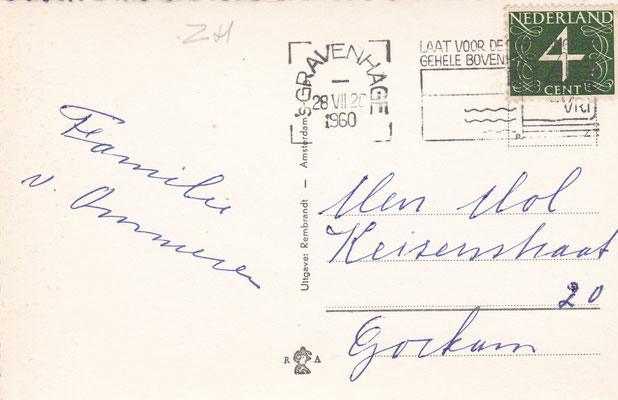 ZH
'S GRAVENHAGE
28 VII 20
1960
LAAT VOOR DE
GEHELE BOVEN
VRIJ
NEDERLAND
4
CENT
Familie
v. Ommeren
Uitgave: Rembrandt — Amsterdam
Mevr Mol
Keiserstraat
20
Gorkum
R A